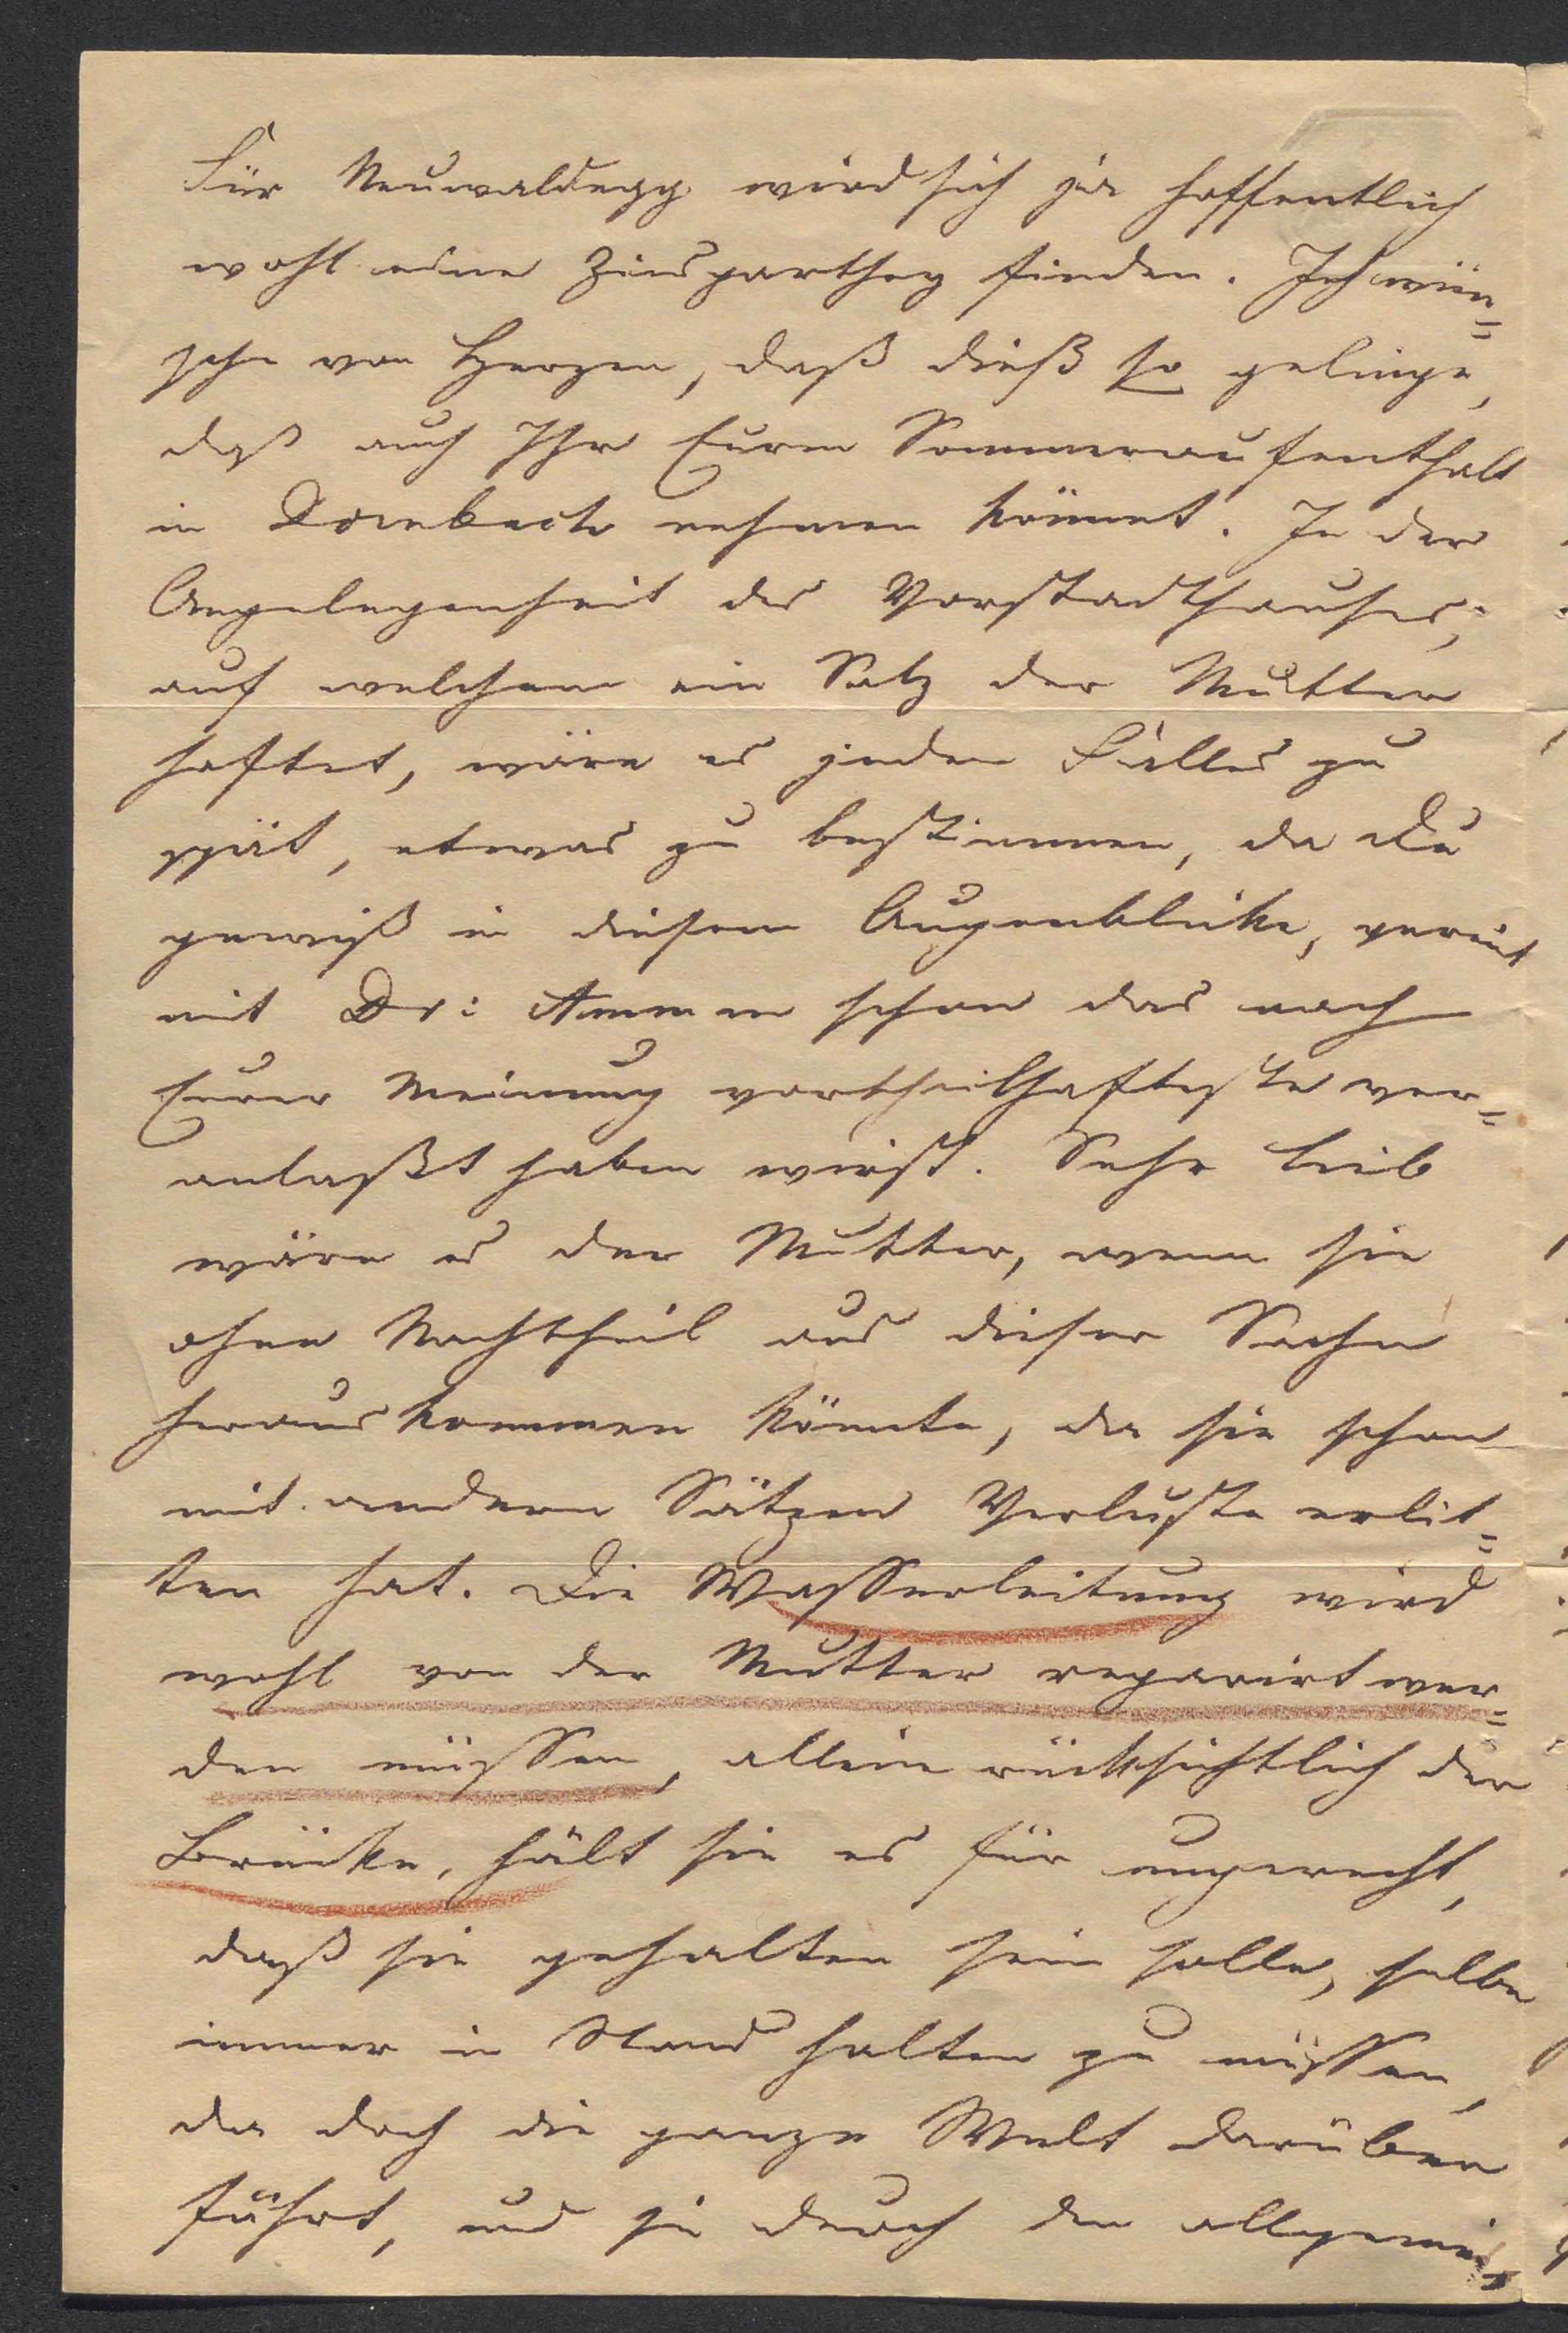 Für Neuwaldegg wird sich ja hoffentlich
wohl eine Zinsparthey finden. Ich wün=
sche von Herzen, daß dieß so gelinge,
daß auch Ihr Euren Sommeraufenthalt
in Dornbach nehmen könnet. In der
Angelegenheit des Vorstadthauses,
auf welchem ein Satz der Mutter
haftet, wäre es jeden Falles zu
spät, etwas zu bestimmen, da Du
gewiß in diesem Augenblicke, vereint
mit Dr: Ammann schon das nach
Eurer Meinung vortheilhafteste ver=
anlaßt haben wirst. Sehr lieb
wäre es der Mutter, wenn sie
ohne Nachtheil aus dieser Sache
herauskommen könnte, da sie schon
mit andern Sätzen Verluste erlit=
ten hat. Die Wasserleitung wird
wohl von der Mutter reparirt wer=
den müssen, allein rücksichtlich der
Brücke, hält sie es für ungerecht,
daß sie gehalten sein solle, selbe
immer in Stand halten zu müssen,
da doch die ganze Welt darüber
fährt, und sie durch den allgemei=